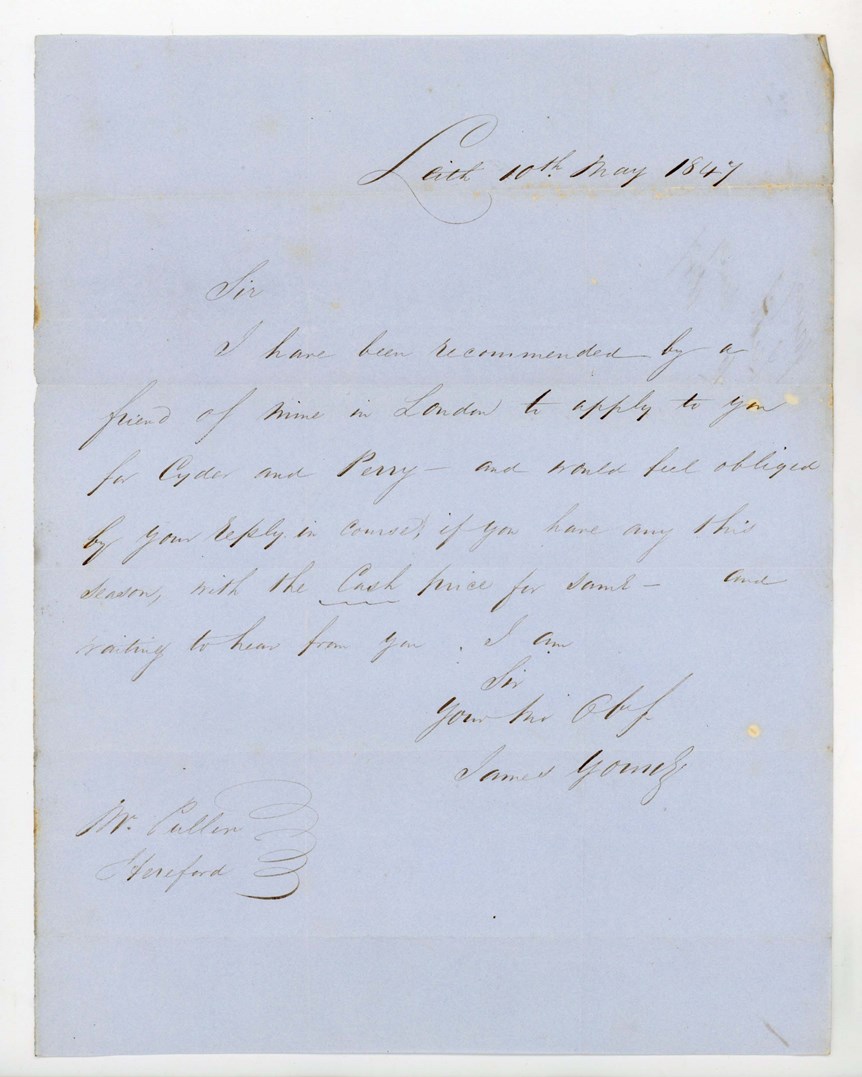 Leith 10th May 1847
Sir
I have been recommended by a
friend of mine in London to apply to you
for Cyder and Perry – and would feel obliged
by your reply in course, if you have any this
season, with the Cash price for same – and
waiting to hear from you . I am
Sir
Your Obt
James Young
Mr. Pullen
Hereford